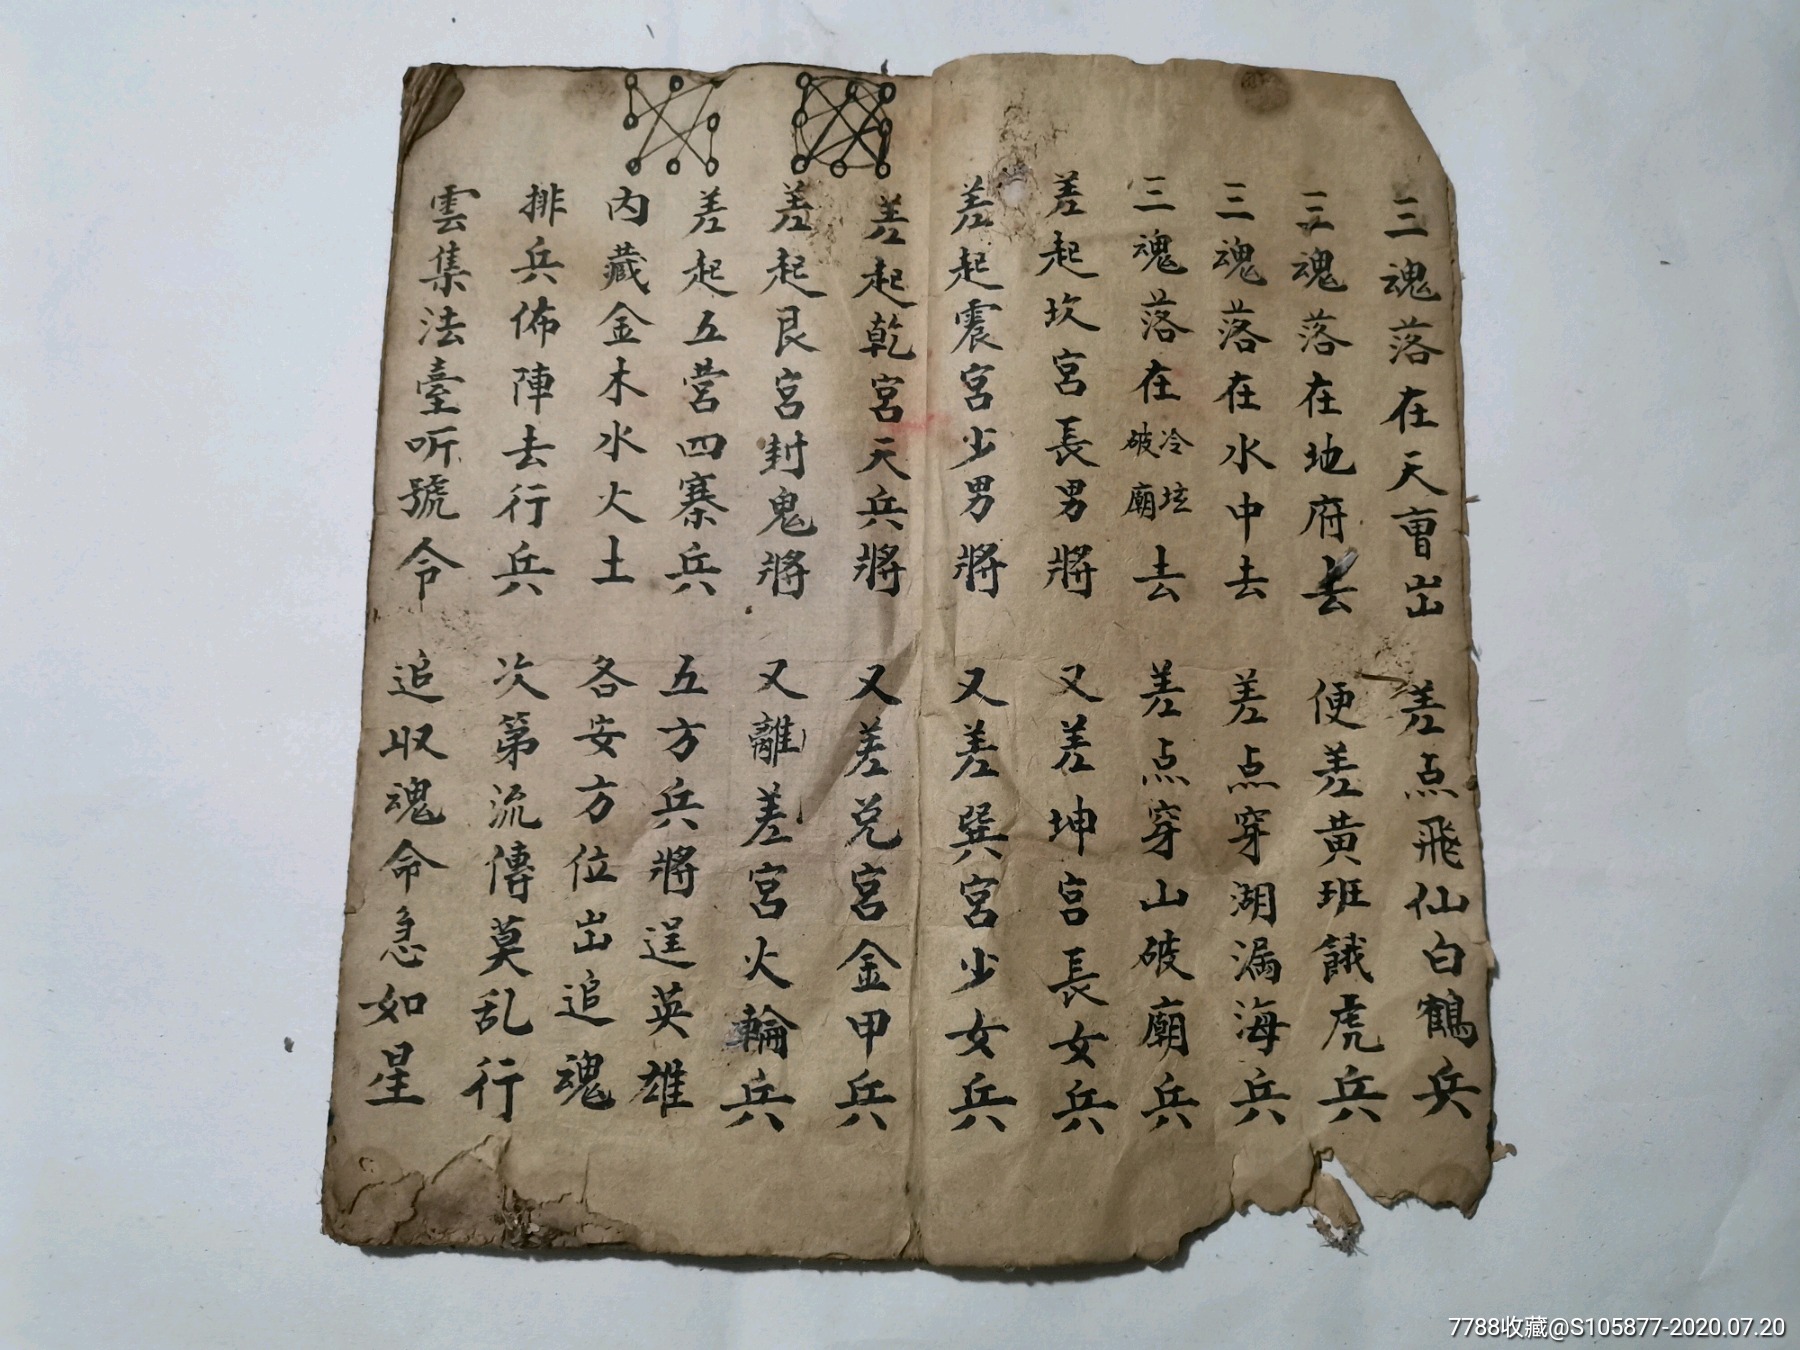 三魂落在天曺出　差点飛仙白鶴兵
三魂落在地府去　便差黄班餓虎兵
三魂落在水中去　差点穿湖漏海兵
三魂落在冷坛破廟去　差点穿山破廟兵
差起坎宮長男將　又差坤宮長女兵
差起震宮少男將　又差巽宮少女兵
差起乾宮天兵將　又差兑宮金甲兵
差起艮宮封鬼將　又離差宮火輪兵
差起五营四寨兵　五方兵將逞英雄
内藏金木水火土　各安方位出追魂
排兵佈陣去行兵　次第流傳莫乱行
雲集法臺听號令　追収魂命急如星
7788收藏@S105877-2020.07.20